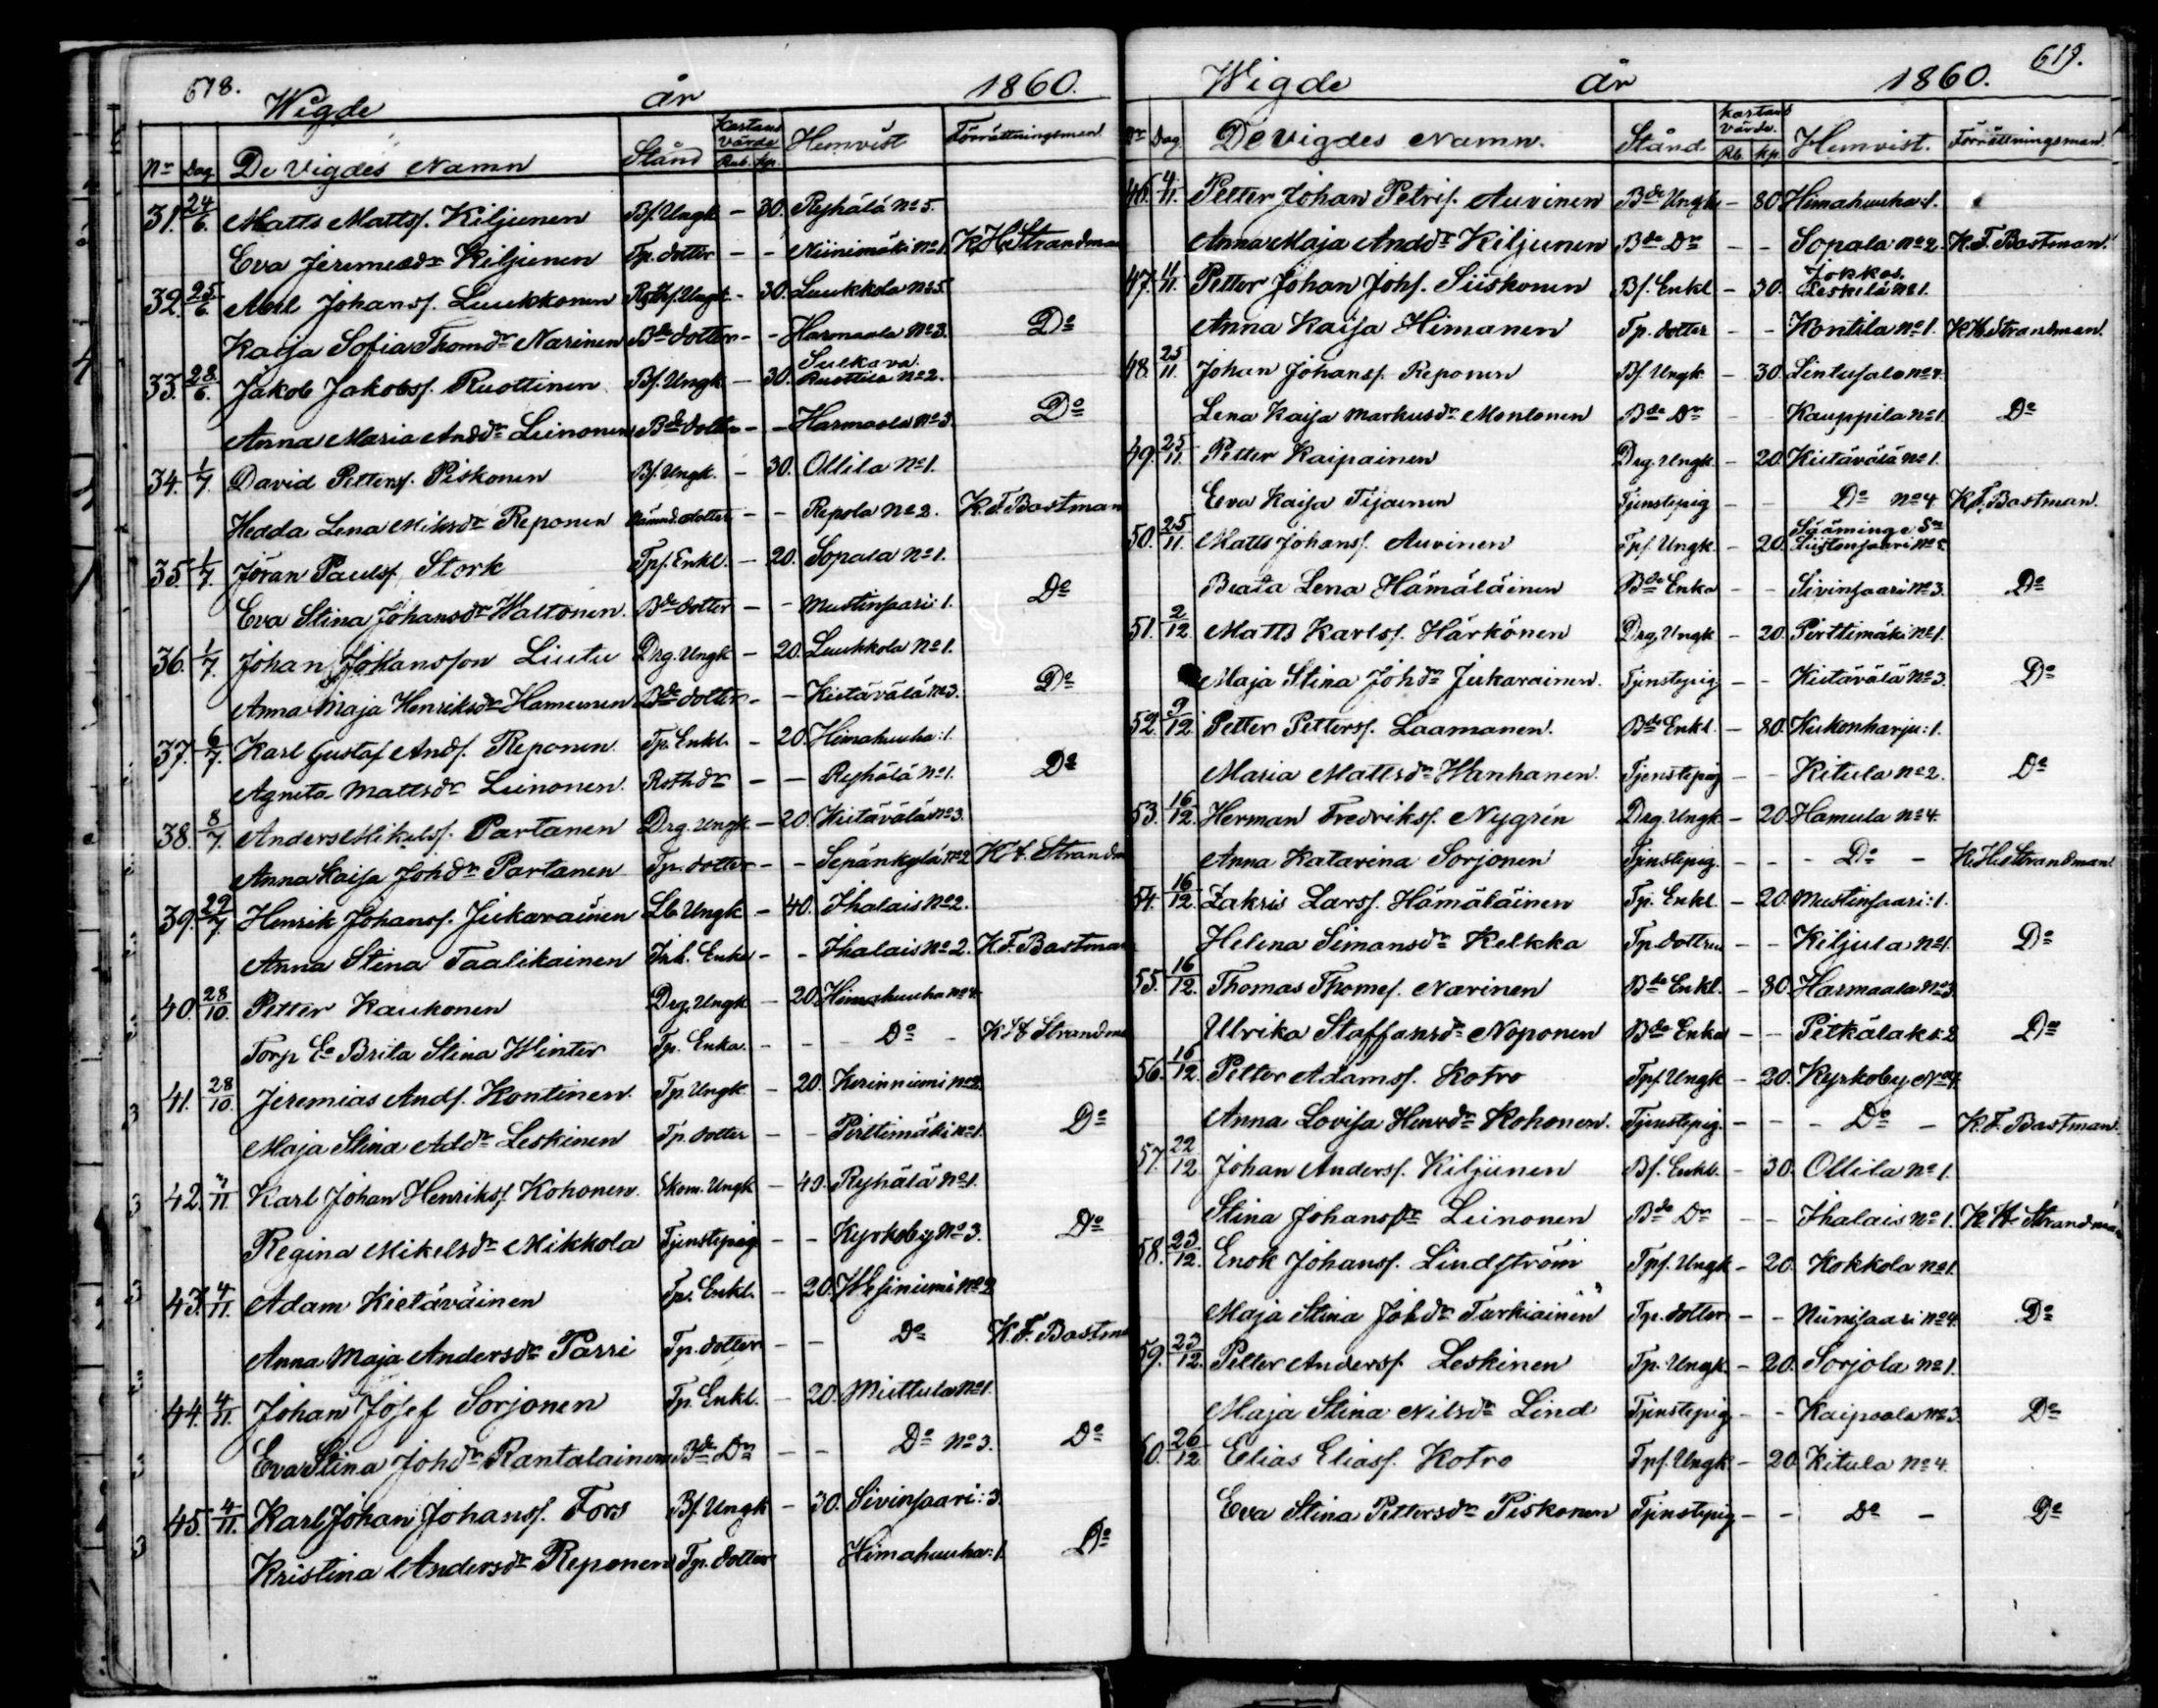 618.
Wigde år 1860.
No Dag De Vigdes Namn Stånd Kostans värde Rub. kp. Hemvist Förrättningsman
31. 24/6. Matts Mattss. Kiljunen Bf. Ungk. — 30. Ryhälä No 5.
Eva Jeremiedr Kiljunen Tp. dotter — — Niinimäki No 1. K. H. Strandman
32. 25/6. Johanss. Luukkonen Ungk. — 30. Luukkola No 5.
Kaija Sofia Thomdr Narinen Bde dotter — — Harmaala No 3. Do
33. 28/6. Jakob Jakobss. Ruottinen Bf. Ungk. — 30. Sulkava Ruottila No 2.
Anna Maria Anddr Leinonen Bde dotter — — Harmaala No 3. Do
34. 1/7. David Petterss. Piskonen Bf. Ungk. — 30. Ollila No 1.
Hedda Lena Reponen dotter — — Repola No 2. K. F. Bastman
35. 1/7. Jöran Paulss. Stork Tpf. Enkl. — 20. Sopala No 1.
Eva Stina Johansdr Waltonen. Bde dotter — — Mustinsaari: 1. Do
36. 1/7. Johan Johansson Liutu Drg. Ungk — 20. Luukkola No 1.
Anna Maja Henriksdr Hamunen Bde dotter — — Kietävälä No 3. Do
37. 6/7. Karl Gustaf Ands. Reponen Tp. Enkl. — 20. Himahuuha: 1.
Agneta Mattsdr Leinonen. Rothdr — — Ryhälä No 1. Do
38. 8/7. Anders Mikels. Partanen Drg. Ungk. — 20. Kietävälä No 3.
Anna Kaisa Johdr Partanen Tp. dotter — — Sepänkylä No 2 K. H. Strandm
39. 29/7. Henrik Johanss. Jukarainen Lb. Ungk — 40. Ihalais No 2.
Anna Stina Taalikainen Inh. Enka — — Ihalais No 2. K. F. Bastman
40. 28/10. Petter Kaukonen Drg. Ungk — 20. Himahuuha No 4.
Torp Ea Brita Stina Winter Tp. Enka. — — Do — K. H. Strandma
41. 28/10. Jeremias Ands. Kontinen. Tp. Ungk — 20. Kerinniemi No 2.
Maja Stina Addr Leskinen Tp. dotter — — Pirttimäki No 1. Do
42. 4/11. Karl Johan Henrikss. Kohonen. Skom. Ungk — 40. Ryhälä No 1.
Regina Mikelsdr Mikkola Tjenstepig — — Kyrkoby No 3. Do
43. 4/11. Adam Kietäväinen Tp. Enkl. — 20. Wesiniemi No 2
Anna Maja Andersdr Parri Tp. dotter — — Do K. F. Bastm
44. 4/11. Johan Josef Sorjonen Tp. Enkl. — 20. Miettula No 1.
Eva Stina Johdr Rantalainen Bde Dr — — Do No 3. Do
45. 4/11. Karl Johan Johanss. Fors Bf. Ungk — 30. Sivinsaari: 3.
Kristina Andersdr Reponen Tp. dotter Himahuuha: 1. Do
619.
Wigde år 1860.
No Dag. De Vigdes Namn. Stånd. Kostans värde. Rb. kp. Hemvist. Förrättningsman.
46. 4/11. Petter Johan Petris. Auvinen Bde Ungk — 80 Himahuuha: 1.
Anna Maja Anddr Kiljunen Bde Dr — — Sopala No 2. K. F. Bastman.
47. 4/11. Petter Johan Johs. Siiskonen Bf. Enkl — 30. Jokkas. Leskelä No 1.
Anna Kaisa Himanen Tp. dotter — — Kontila No 1. K. H. Strandman.
48. 25/11. Johan Johanss. Reponen Bf. Ungk — 30. Lintusalo No 4.
Lena Kaisa Markusdr Montonen Bde Dr — — Kauppila No 1. Do
49. 25/11. Petter Kaipainen Drg. Ungk. — 20. Kietävälä No 1.
Eva Kaisa Tijainen Tjenstepig — — Do No 4 K. F. Bastman.
50. 25/11. Matts Johanss. Auvinen Tpf. Ungk. — 20. Sääminge Sn
Beata Lena Hämäläinen Bde Enka — — Sivinsaari No 3. Do
51. 2/12. Matts Karlss. Härkönen Drg. Ungk — 20. Pirttimäki No 1.
Maja Stina Johdr Jukarainen. Tjenstepig — — Kietävälä No 3. Do
52. 9/12. Petter Petterss. Laamanen. Bde Enkl. — 80. Kukonharju: 1.
Maria Mattsdr Wanhanen. Tjenstepig — — Kitula No 2. Do
53. 16/12. Herman Fredrikss. Nygrén Drg. Ungk — 20. Hamula No 4.
Anna Katarina Sorjonen Tjenstepig. — — Do — K. H. Strandman.
54. 16/12. Zakris Larss. Hämäläinen Tp. Enkl. — 20. Mustinsaari: 1.
Helena Simonsdr Kelkka Tp. dotter — — Kiljula No 1. Do
55. 16/12. Thomas Thomes. Narinen Bde Enkl. — 80. Harmaala No 3.
Ulrika Staffansdr Noponen Bde Enka — — Pitkälaks: 2 Do
56. 16/12. Petter Adamss. Kotro Tpf. Ungk — 20. Kyrkoby No 4.
Anna Lovisa Henrdr Kohonen. Tjenstepig. — — Do — K. F. Bastman.
57. 22/12. Johan Anderss. Kiljunen Bf. Enkl. — 30. Ollila No 1.
Stina Johansdr Leinonen Bde Dr — — Ihalais No 1. K. H. Strandman
58. 23/12. Enok Johanss. Lindström Tpf. Ungk — 20. Kokkola No 1.
Maja Stina Johdr Turkiainen Tp. dotter — — Niinisaari No 4. Do
59. 23/12. Petter Anderss. Leskinen Tp. Ungk — 20. Sorjola No 1.
Maja Stina Nilsdr Lind Tjenstepig — — Kaipaala No 3. Do
60. 26/12. Elias Eliass. Kotro Tpf. Ungk — 20. Kitula No 4.
Eva Stina Pettersdr Piskonen Tjenstepig — — Do — Do